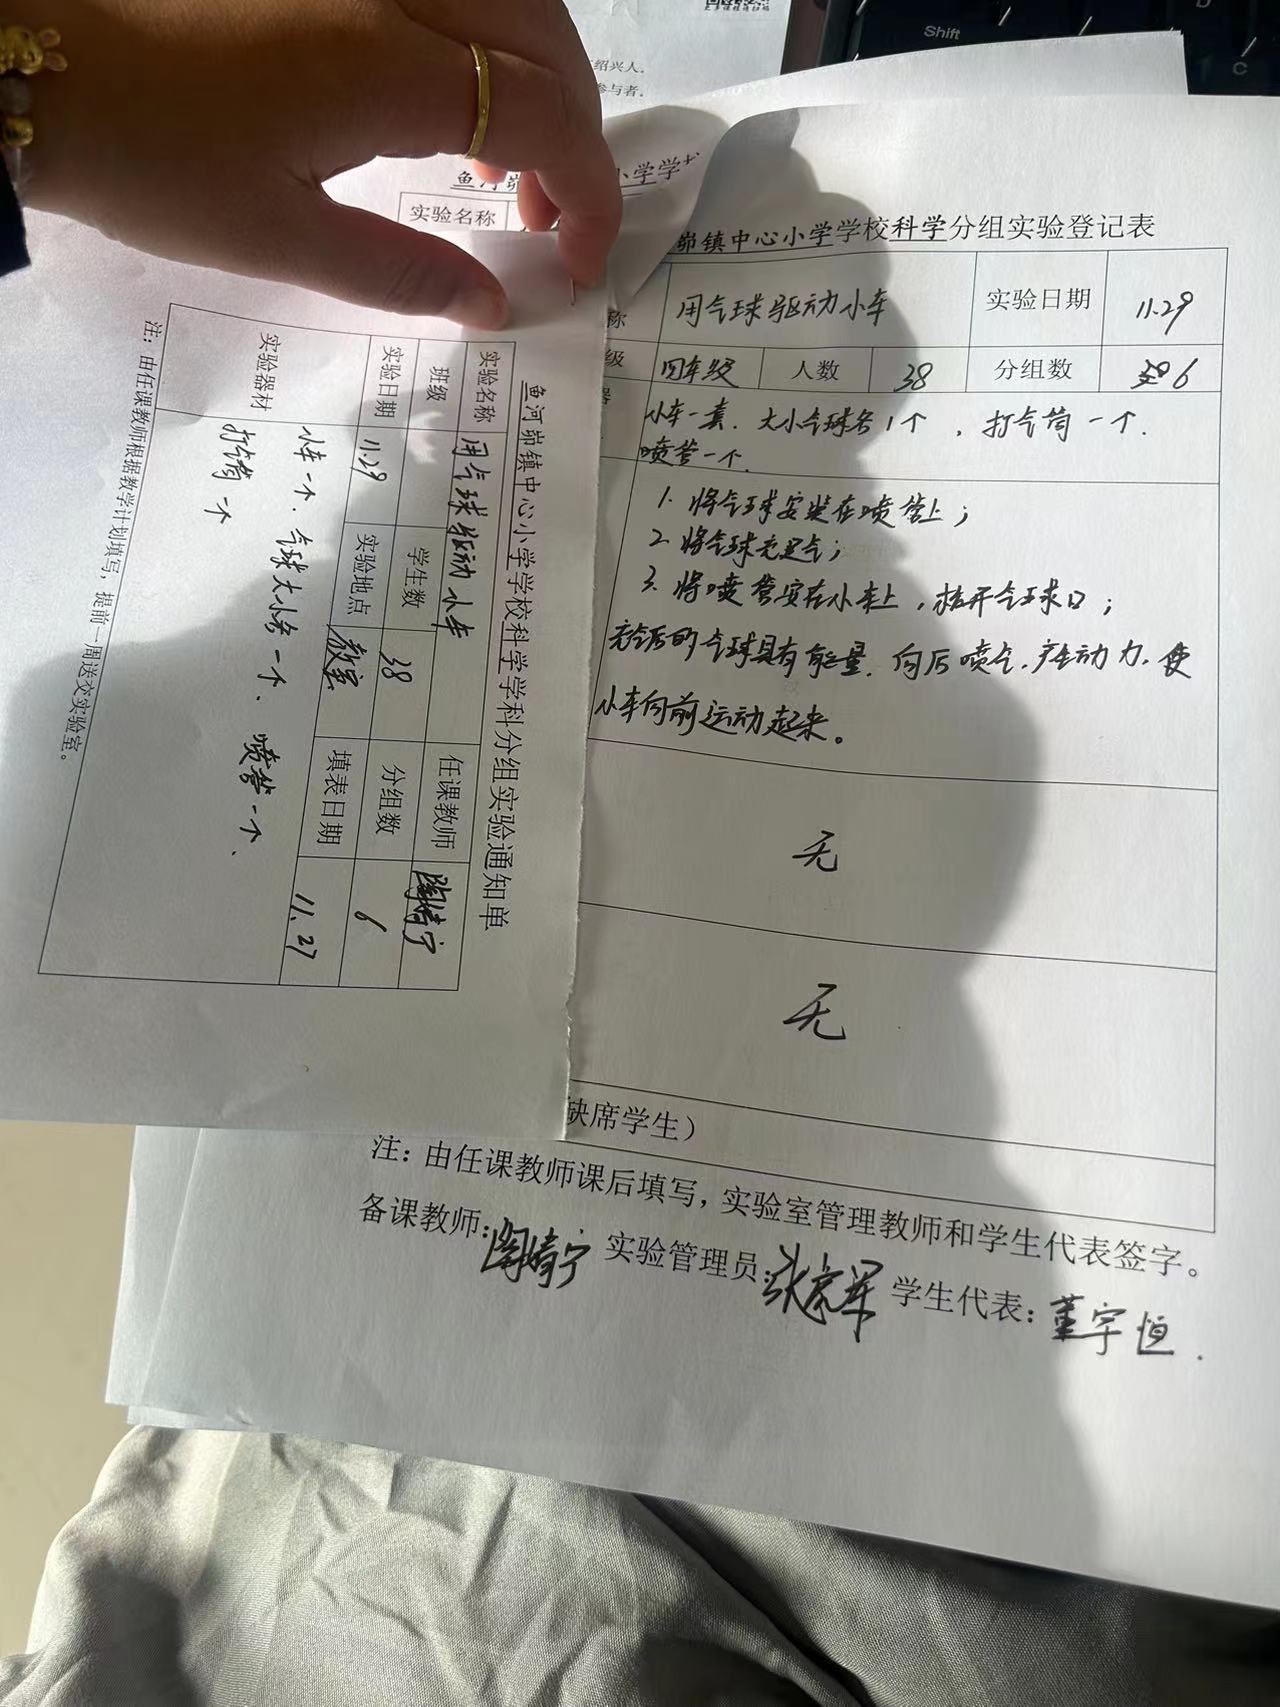 Shift
D
C
绍兴人。
参与者。
鱼河峁
小学学
实验名称
峁镇中心小学学校科学分组实验登记表
称 用气球驱动小车 实验日期 11.29
级 四年级 人数 38 分组数 6
小车一套.大小气球各1个,打气筒一个.
喷管一个.
1.将气球安装在喷管上;
2.将气球充足气;
3.将喷管安在小车上,松开气球口;
充气后的气球具有能量.向后喷气.产生动力.使
小车向前运动起来。
无
无
缺席学生)
注:由任课教师课后填写,实验室管理教师和学生代表签字。
备课教师:陶婧宁 实验管理员:张家军 学生代表:董宇恒.
鱼河峁镇中心小学学校科学学科分组实验通知单
实验名称 用气球驱动小车 任课教师 陶婧宁
班级 学生数 38 分组数 6
实验日期 11.29 实验地点 教室 填表日期 11.27
实验器材 小车一个、气球大小各一个、喷管一个、
打气筒一个
注:由任课教师根据教学计划填写,提前一周送交实验室。